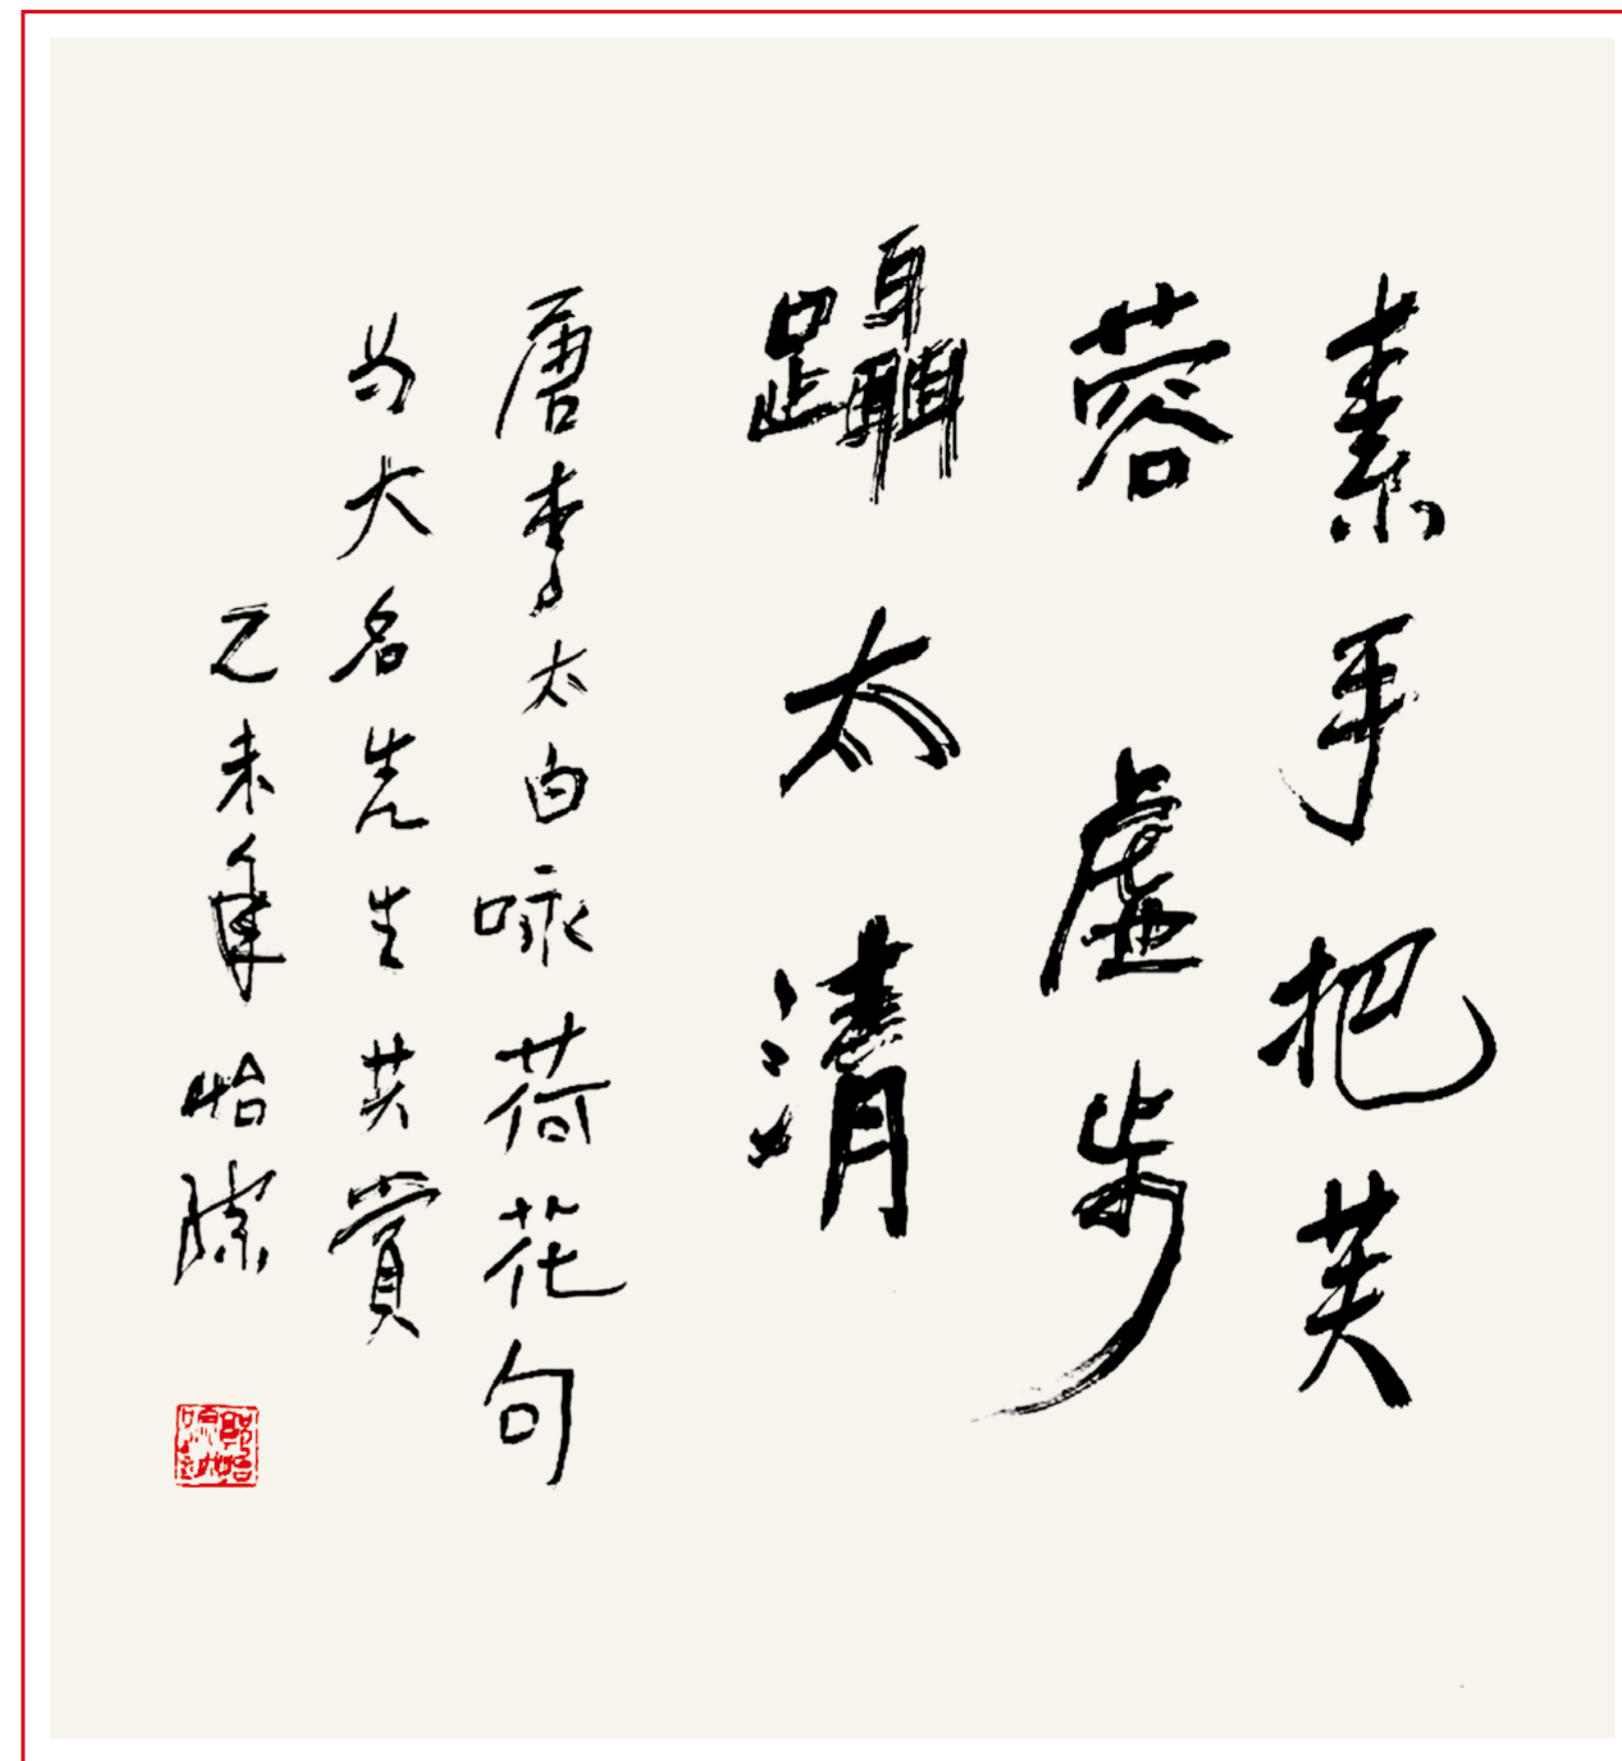 素手把芙
蓉虛步
躡太清
唐李太白咏荷花句
与大名先生共賞
乙未年怡